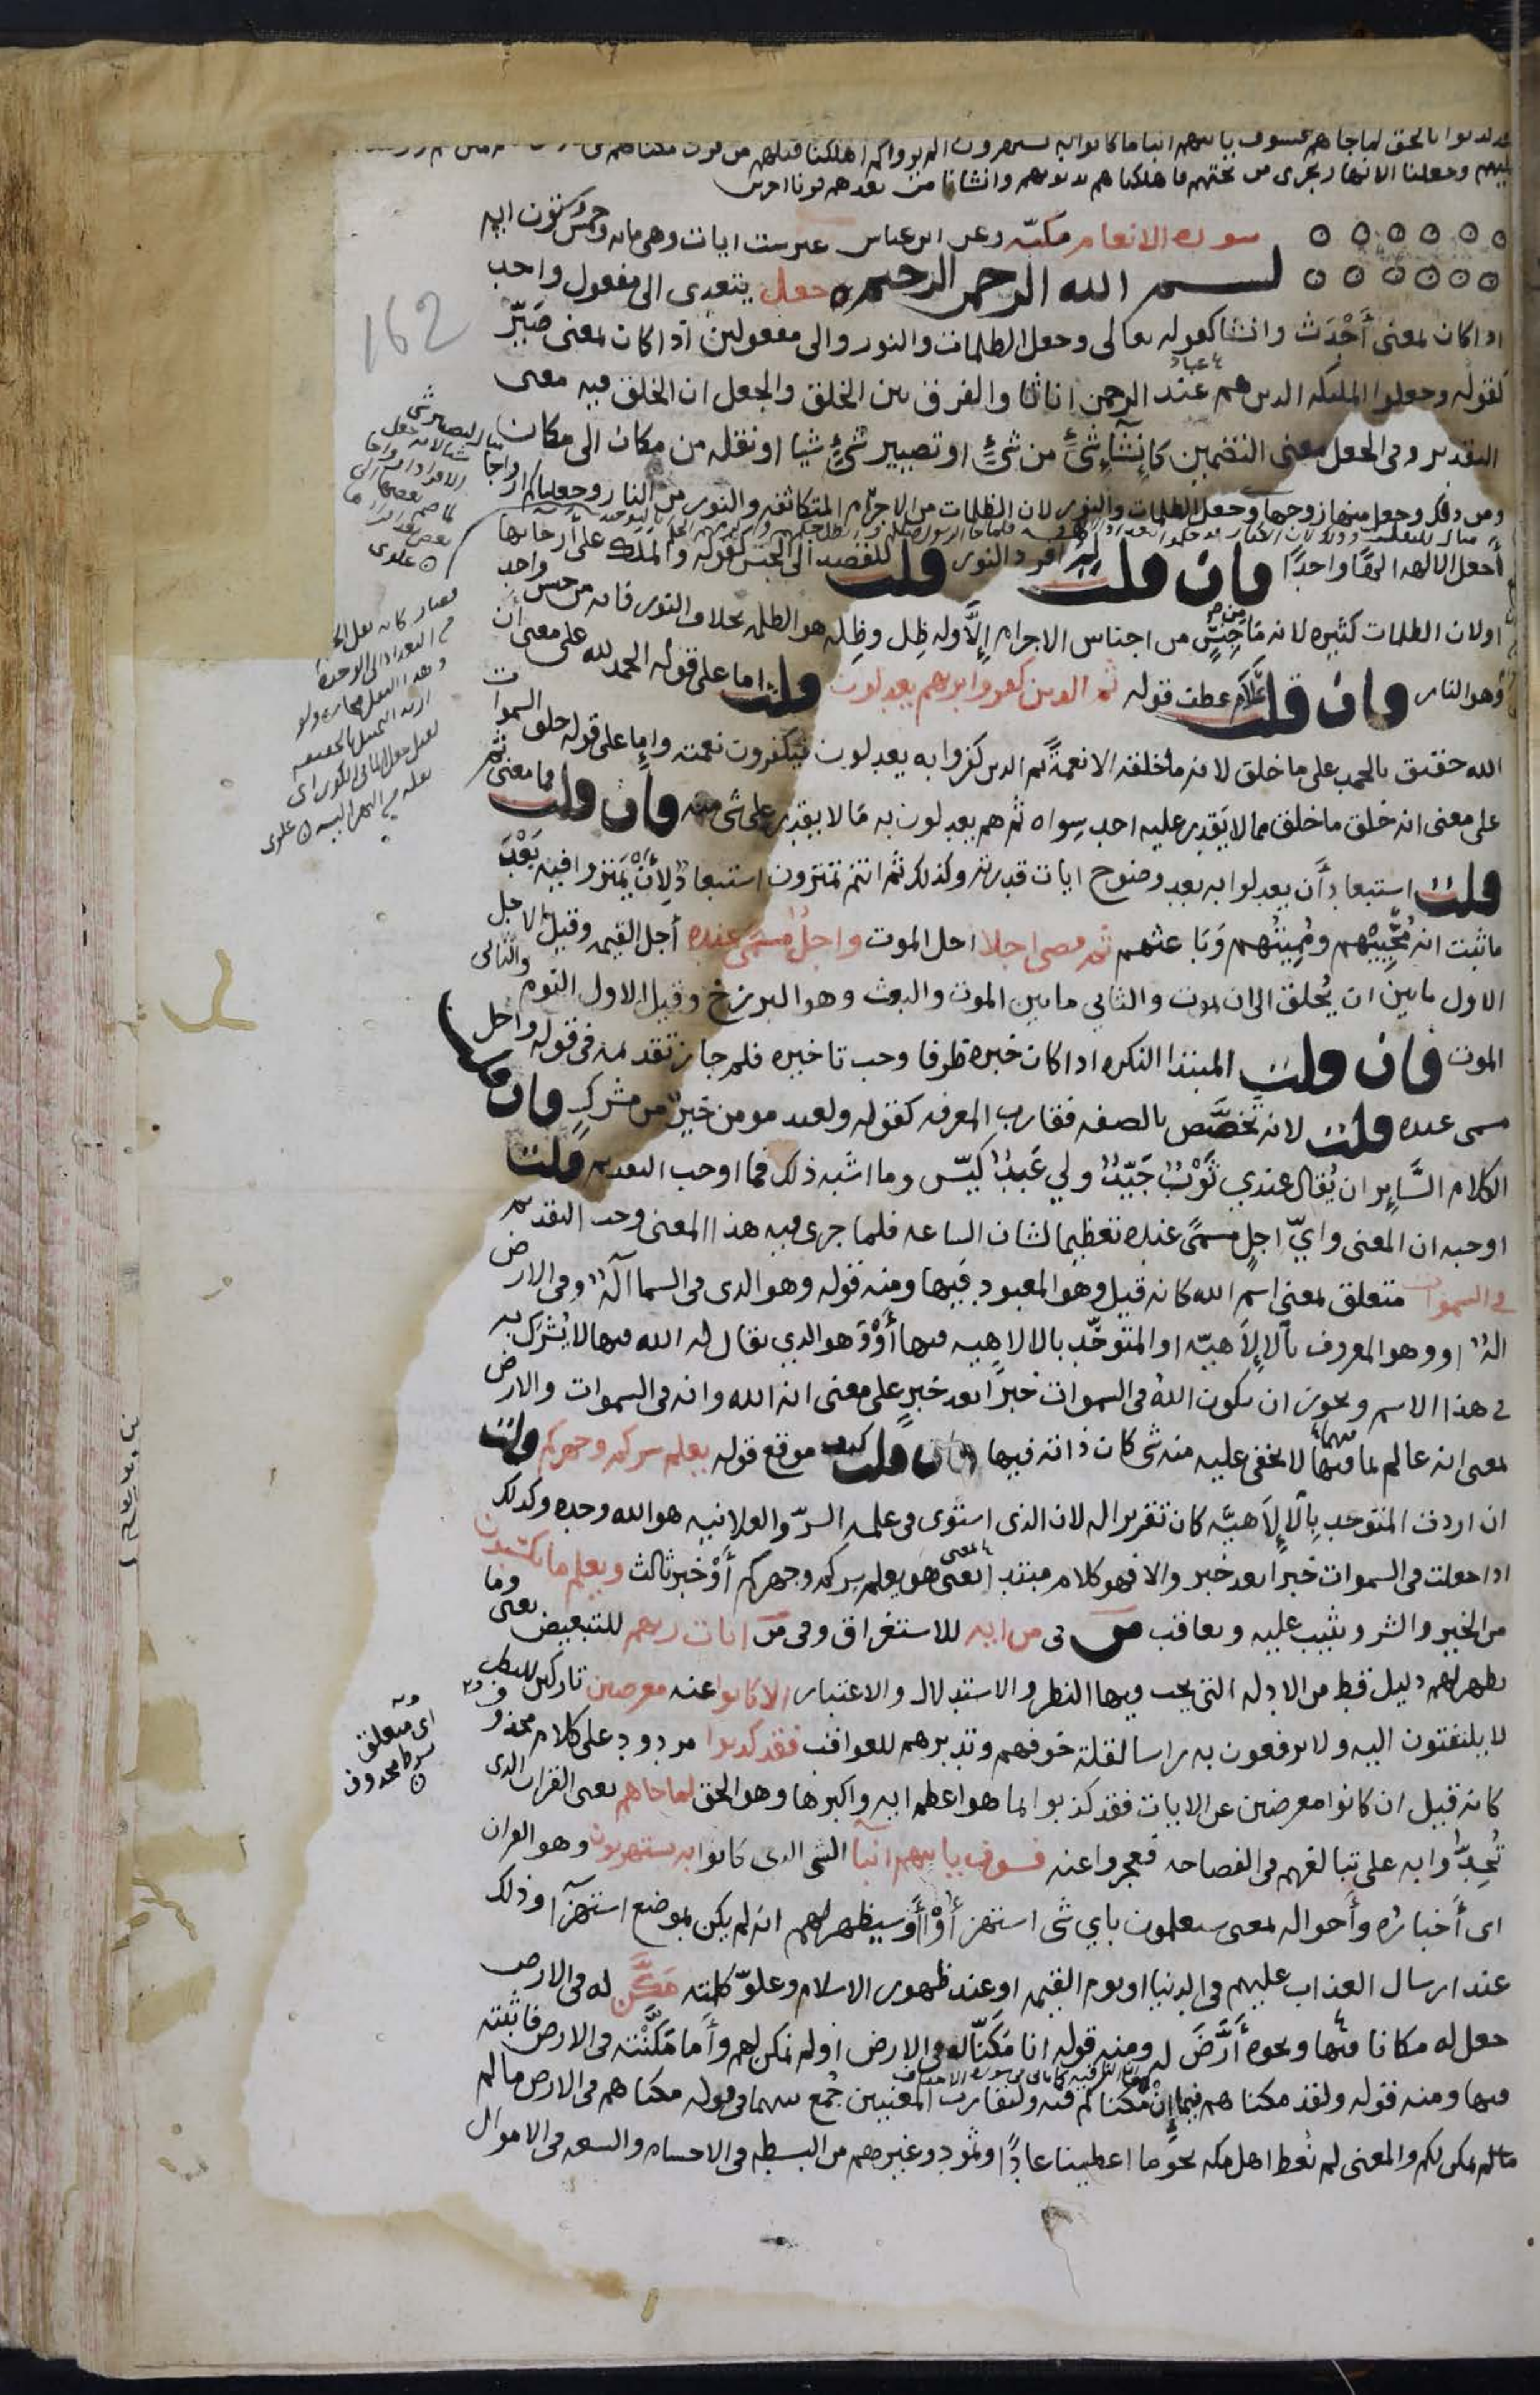 فقد كذبوا بالحق لما جاهم فسوف ياتيهم انبا ما كانوا به يستهزون الم يروا كم اهلكنا قبلهم من قرن مكناهم في
عليهم وجعلنا الانهار تجري من تحتهم فاهلكناهم بذنوبهم وانشانا من بعدهم قرنا اخرين
سورة الانعام مكيّه وعن ابن عباس غير ست ايات وهي مايه وخمس وستون ايه
بسم الله الرحمن الرحيم جعل يتعدى الى مفعول واحد
اذا كان بمعنى أَحْدَثَ وانشا كقوله تعالى وجعل الظلمات والنور والى مفعولين اذا كان بمعنى صَيّرَ
كقوله وجعلوا المليكه الذين هم عند الرحمن اناثا والفرق بين الخلق والجعل ان الخلق فيه معنى
التقدير وفي الجعل معنى التضمين كإنشَاءِ شَيْءٍ من شَيْءٍ او تصيير شَيْءٍ شيا او نقله من مكان الى مكان
ومن ذلك وجعل منها زوجها وجعل الظلمات والنور لان الظلمات من الاجرام المتكاثفه والنور من النار وجعلناكم ازواجا
أجعل الالهه الهًا واحدًا فان قلت لم افرد النور قلت للقصد الى الجنس كقوله والملك على أرجائها
اولان الظلمات كثيره لانه ما من جنسٍ من اجناس الاجرام إلّا وله ظِل وظِله هو الظلمه بخلاف النور فانه من جنس واحد
وهو النار فان قلت علام عطف قوله ثم الذين كفروا بربهم يعدلون قلت اما على قوله الحمد لله على معنى أن
الله حقيق بالحمد على ما خلق لانه ما خلقه الا نعمةً ثم الذين كفروا به يعدلون فيكفرون نعمته وإما على قوله خلق السموات
على معنى انه خلق ما خلق مما لا يَقدِر عليه احد سِواه ثم هم يعدلون به مَا لا يقدر على شي منه فان قلت فما معنى ثم
قلت استبعاد أن يعدلوا به بعد وضوح ايات قدرته وكذلك ثم انتم تمترون استبعادٌ لِأَنْ يَمتروا فيه بَعْدَ
ما ثبت انه مُحْيِيهم ومُمِيتُهم وَبَاعثهم ثم قضى اجلا اجل الموت واجلٌ مسمّى عنده أجل القيمه وقيل الاجل
الاول ما بين ان يُخلق الى ان يموت والثاني ما بين الموت والبعث وهو البرزخ وقيل الاول النوم والثاني
الموت فان قلت المبتدا النكره اذا كان خبره ظرفا وجب تاخيره فلم جاز تقدمه في قوله واجل
مسمى عنده قلت لانه تخصّص بالصفه فقارب المعرفه كقوله ولعبد مومن خيرٌ من مشركٍ فان قلت
الكلام السَّايِر ان يُقال عندي ثَوْبٌ جَيّدٌ ولي عَبدٌ كيّس وما اشبه ذلك فما اوجب التقديم قلت
اوجبه ان المعنى وايّ اجلٍ مسمًى عنده تعظيما لشان الساعه فلما جرى فيه هذا المعنى وجب التقديم
في السموات متعلق بمعنى اسم الله كانه قيل وهو المعبود فيها ومنه قوله وهو الذي في السما الهٌ وفي الارض
الهٌ او وهو المعروف بالإلاهيّه او المتوحّد بالالاهيه فيها أوْ وَهو الذي يقال له الله فيها لا يُشرَك به
في هذا الاسم ويجوز ان يكون اللهُ في السموات خبرًا بعد خبرٍ على معنى انه الله وانه في السموات والارض
بمعنى انه عالم بما فيهما لا يخفى عليه منه شي كان ذاته فيها فان قلت كيف موقع قوله يعلم سركم وجهركم قلت
ان اردت المتوحد بالإلاهيَّه كان تقريرا له لان الذي استوى في علمه السرّ والعلانيه هو الله وحده وكذلك
اذا جعلت في السموات خبرا بعد خبر والا فهو كلام مبتدا بمعنى هو يعلم سركم وجهركم أوْ خبر ثالث ويعلم ما تكسبون
من الخير والشر ويثيب عليه ويعاقب من في من ايه للاستغراق وفي مِن ايات ربهم للتبعيض يعني وما
يظهر لهم دليل قط من الادله التي يجب فيها النظر والاستدلال والاعتبار الا كانوا عنه معرضين تاركين للنظر
لا يلتفتون اليه ولا يرفعون به راسا لقلة خوفهم وتدبرهم للعواقب فقد كذبوا مردود على كلام محذوف
كانه قيل ان كانوا معرضين عن الايات فقد كذبوا بما هو اعظم ايه واكبرها وهو الحق لما جاهم يعني القران الذي
تُحدُّوا به على تبالغهم في الفصاحه فعجزوا عنه فسوف ياتيهم انبا الشي الذي كانوا به يستهزيون وهو القران
اي أخباره وأحواله بمعنى سيعلمون باي شي استهزأُوْا أوْ سيظهر لهم انه لم يكن بموضع استهزآ وذلك
عند ارسال العذاب عليهم في الدنيا او يوم القيمه او عند ظهور الاسلام وعلوّ كلمته مَكَّن له في الارض
جعل له مكانا فيها ونحوه أَرَّضَ له ومنه قوله انا مَكَنّا له في الارض أولم نمكن لهم وأما مَكَّنْته في الارض فاثبته
فيها ومنه قوله ولقد مكناهم فيما إنْ مكناكم فيه ولتقارب المعنيين جُمع بينهما في قوله مكناهم في الارض ما لم
نمكن لكم والمعنى لم نُعط اهل مكه نحوَ ما اعطينا عادًا وثمود وغيرهم من البسطه في الاجسام والسعه في الاموال
اي متعلق
بشرط محذوف
162